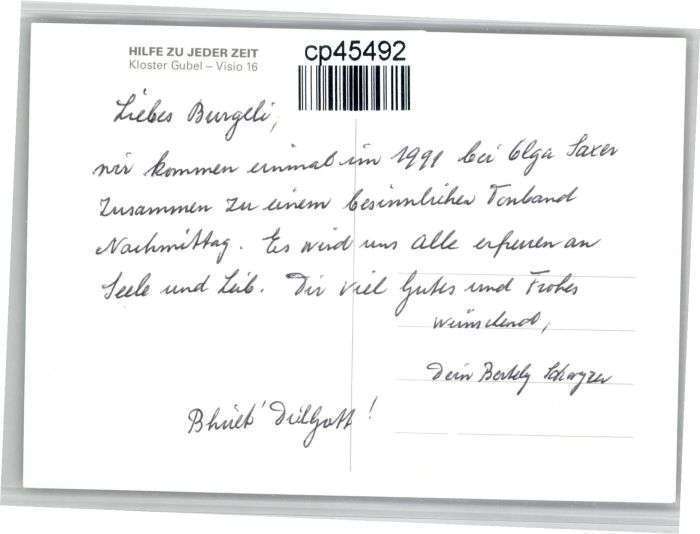 HILFE ZU JEDER ZEIT
Kloster Gubel – Visio 16
cp45492
Liebes Burgeli,
wir kommen einmal im 1991 bei Olga Saxer
zusammen zu einem besinnlichen Tonband
Nachmittag. Es wird uns alle erfreuen an
Seele und Leib. Dir viel Gutes und Frohes
wünschend,
Dein
Bhüet Di Gott!